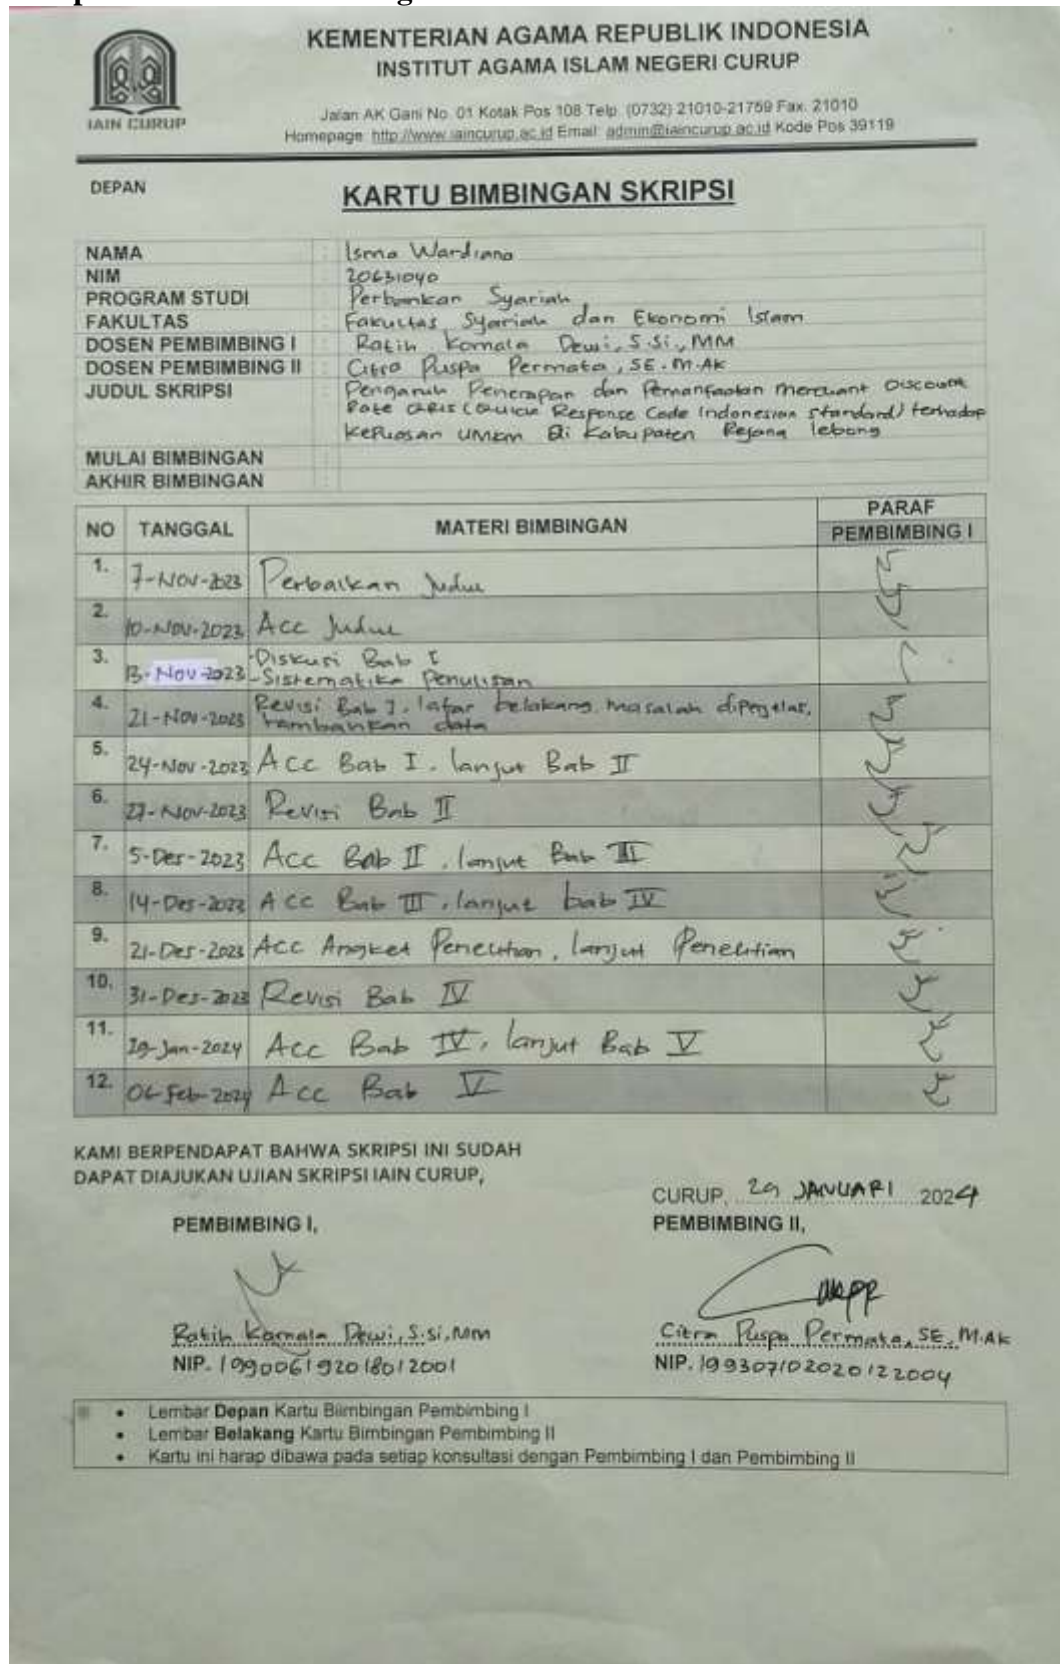 KEMENTERIAN AGAMA REPUBLIK INDONESIA
INSTITUT AGAMA ISLAM NEGERI CURUP
IAIN CURUP
Jalan AK Gani No. 01 Kotak Pos 108 Telp. (0732) 21010-21759 Fax. 21010
Homepage: http://www.iaincurup.ac.id Email: admin@iaincurup.ac.id Kode Pos 39119
DEPAN
KARTU BIMBINGAN SKRIPSI
NAMA : Isma Wardiana
NIM : 20631040
PROGRAM STUDI : Perbankan Syariah
FAKULTAS : Fakultas Syariah dan Ekonomi Islam
DOSEN PEMBIMBING I : Ratih Komala Dewi, S.Si., MM
DOSEN PEMBIMBING II : Citra Puspa Permata, SE. M.AK
JUDUL SKRIPSI : Pengaruh Penerapan dan Pemanfaatan Merchant Discount
Rate QRIS (Quick Response Code Indonesian Standard) terhadap
Kepuasan UMKM Di Kabupaten Rejang lebong
MULAI BIMBINGAN :
AKHIR BIMBINGAN :
NO TANGGAL MATERI BIMBINGAN PARAF PEMBIMBING I
1. 7-Nov-2023 Perbaikan Judul
2. 10-Nov-2023 Acc Judul
3. 13-Nov-2023 -Diskusi Bab I
-Sistematika Penulisan
4. 21-Nov-2023 Revisi Bab I, latar belakang masalah diperjelas,
tambahkan data
5. 24-Nov-2023 Acc Bab I, lanjut Bab II
6. 27-Nov-2023 Revisi Bab II
7. 5-Des-2023 Acc Bab II, lanjut Bab III
8. 14-Des-2023 Acc Bab III, lanjut bab IV
9. 21-Des-2023 Acc Angket Penelitian, lanjut Penelitian
10. 31-Des-2023 Revisi Bab IV
11. 29-Jan-2024 Acc Bab IV, lanjut Bab V
12. 06-Feb-2024 Acc Bab V
KAMI BERPENDAPAT BAHWA SKRIPSI INI SUDAH
DAPAT DIAJUKAN UJIAN SKRIPSI IAIN CURUP,
CURUP, 29 JANUARI 2024
PEMBIMBING I, PEMBIMBING II,
Ratih Komala Dewi, S.Si, MM Citra Puspa Permata, SE, M.AK
NIP. 199006192018012001 NIP. 199307102020122004
• Lembar Depan Kartu Biimbingan Pembimbing I
• Lembar Belakang Kartu Bimbingan Pembimbing II
• Kartu ini harap dibawa pada setiap konsultasi dengan Pembimbing I dan Pembimbing II